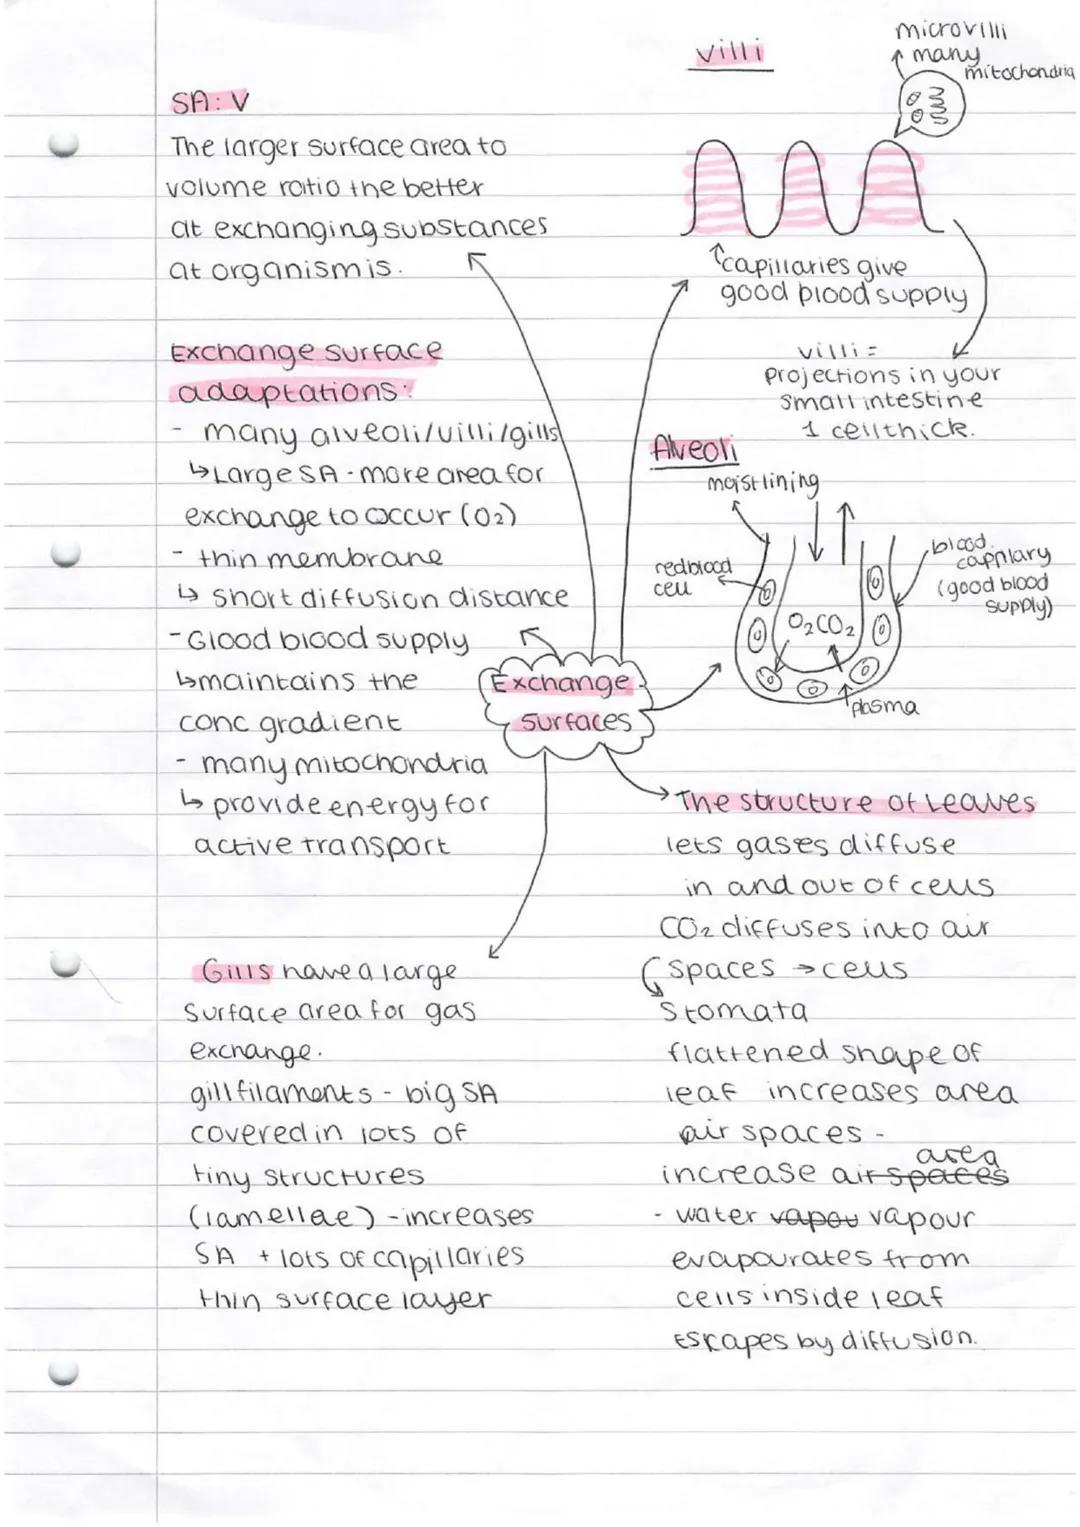 SA: V
The larger surface area to
volume ratio the better
at exchanging substances
at organism is.
Exchange surface
adaptations:
- many alveoli/villi/gills
↳ Large SA - more area for
exchange to occur (O2)
- thin membrane
↳ short diffusion distance
- Glood blood supply
↳ maintains the
conc gradient
- many mitochondria
↳ provide energy for
active transport
Gills have a large
surface area for gas
exchange.
gill filaments - big SA
covered in lots of
tiny structures
(lamellae) - increases
SA + lots of capillaries
thin surface layer
Exchange
surfaces
villi
microvilli
many
mitochondria
capillaries give
good blood supply
villi =
projections in your
small intestine
1 cell thick.
Alveoli
moist lining
red blood
cell
blood
capillary
(good blood
supply)
O2 CO2
plasma
The structure of Leaves
lets gases diffuse
in and out of cells
CO2 diffuses into air
spaces → cells
Stomata
flattened shape of
leaf increases area
air spaces -
area
increase air spaces
- water vapou vapour
evapourates from
cells inside leaf
Escapes by diffusion.